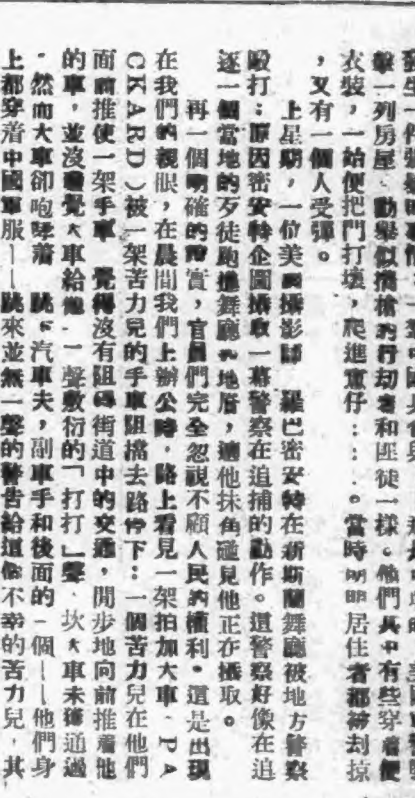 擊一列房屋．動舉似攜槍的行劫者和匪徒一樣。他們其中有些穿着便
衣裝，一始便把門打壞，爬進童仔：：：。當時明明居住者都被刦掠
，又有一個人受彈。
上星期，一位美國攝影師．羅巴密安特在新斯蘭舞廳被地方警察
毆打：原因密安特企圖攝取一幕警察在追捕的動作。這警察好像在追
逐一個當地的歹徒跑進舞廳的地厝，適他抹角碰見他正在攝取。
再一個明確的證實，官員們完全忽視不顧人民的權利。這是出現
在我們的親眼，在晨間我們上辦公時，路上看見一架拍加大車．ＰＡ
ＣＫＡＲＤ）被一架苦力兒的手車阻擋去路停下：一個苦力兒在他們
面前推使一架手車．覺得沒有阻碍街道中的交通，閒步地向前推着他
的車，並沒聽覺大車給他．一聲敷衍的「打打」聲．坎大車未獲通過
．然而大車卻咆哮着．跳下汽車夫，副車手和後面的一個——他們身
上都穿着中國軍服——跳來並無一聲的警告給這個不幸的苦力兒，其